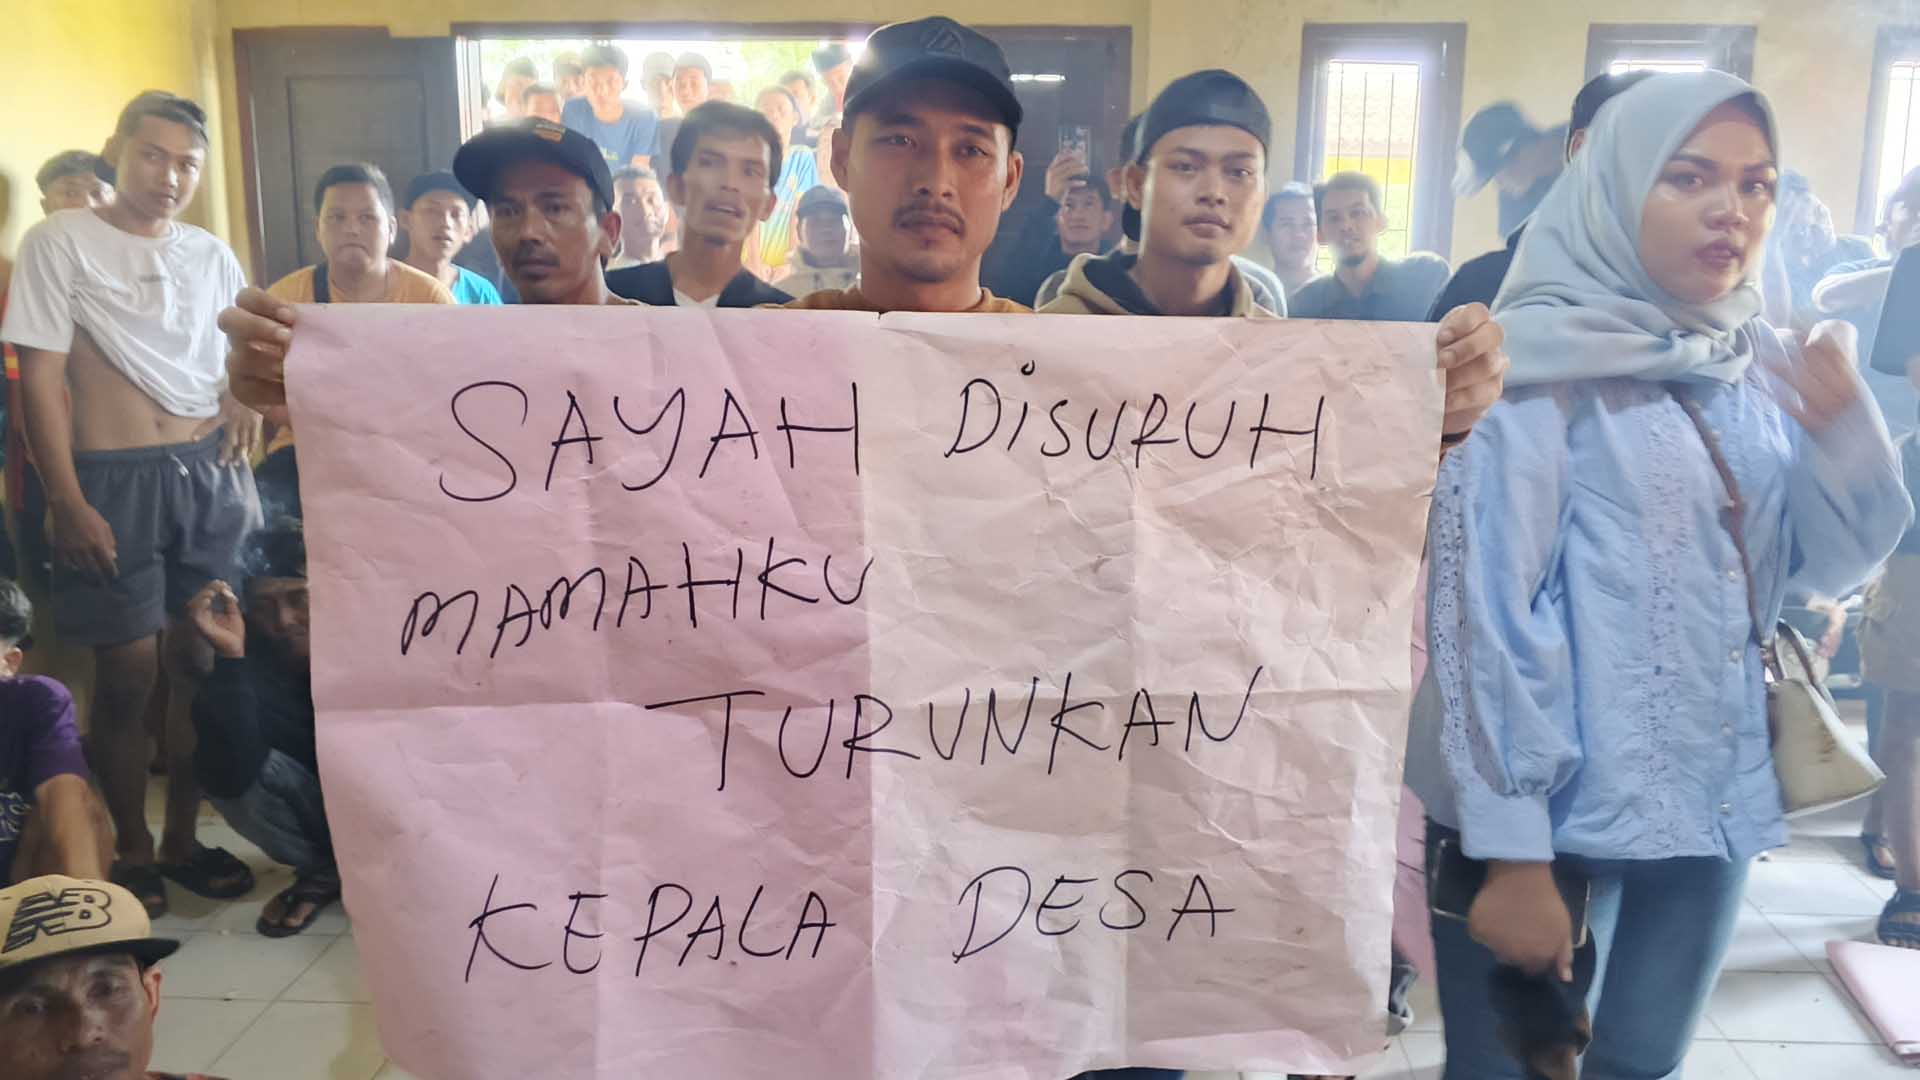 SAYAH DiSURUH
MAMAHKU
TURUNKAN
KEPALA DESA